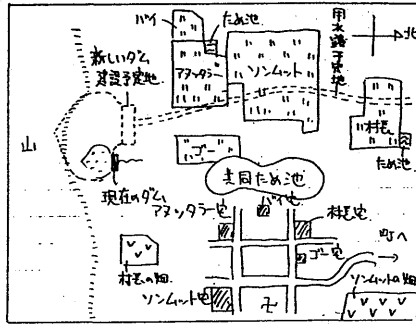 バイ
ため池
用水路予定地
北
新しいダム
建設予定地
アヌッタラー
ソンムット
村長
ため池
山
ゴー
共同ため池
現在のダム
アヌッタラー宅
バイ宅
村長宅
ゴー宅
町へ
村長の畑
ソンムット宅
卍
ソンムットの畑